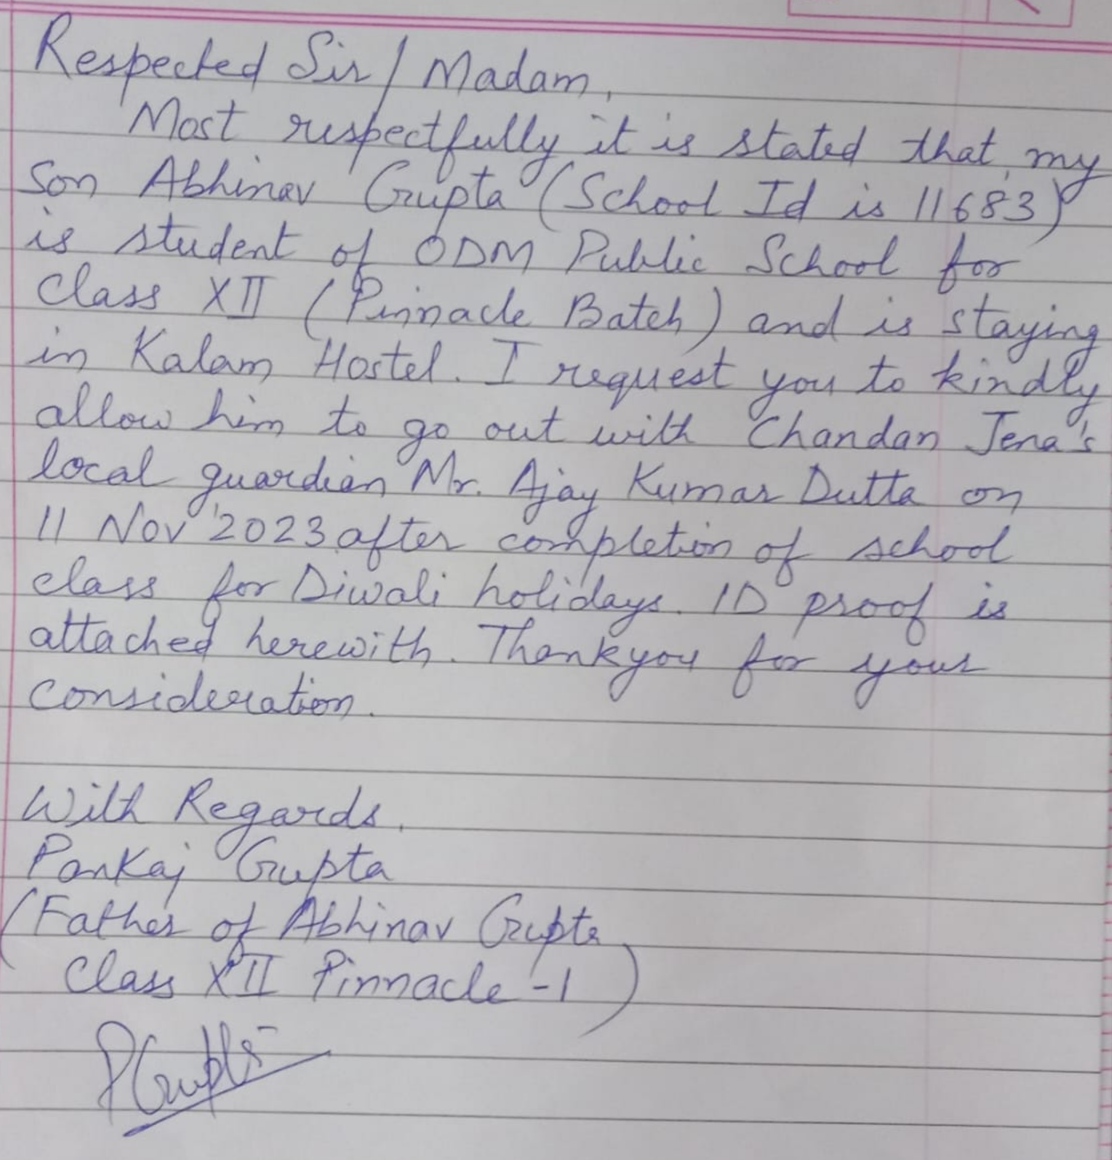 Respected Sir/Madam,
Most respectfully it is stated that my
Son Abhinav Gupta (School Id is 11683)
is student of ODM Public School for
Class XII (Pinnacle Batch) and is staying
in Kalam Hostel. I request you to kindly
allow him to go out with Chandan Jena's
local guardian Mr. Ajay Kumar Dutta on
11 Nov'2023 after completion of school
class for Diwali holidays. ID proof is
attached herewith. Thankyou for your
Consideration.
With Regards,
Pankaj Gupta
(Father of Abhinav Gupta
Class XII Pinnacle -1)
PGupta